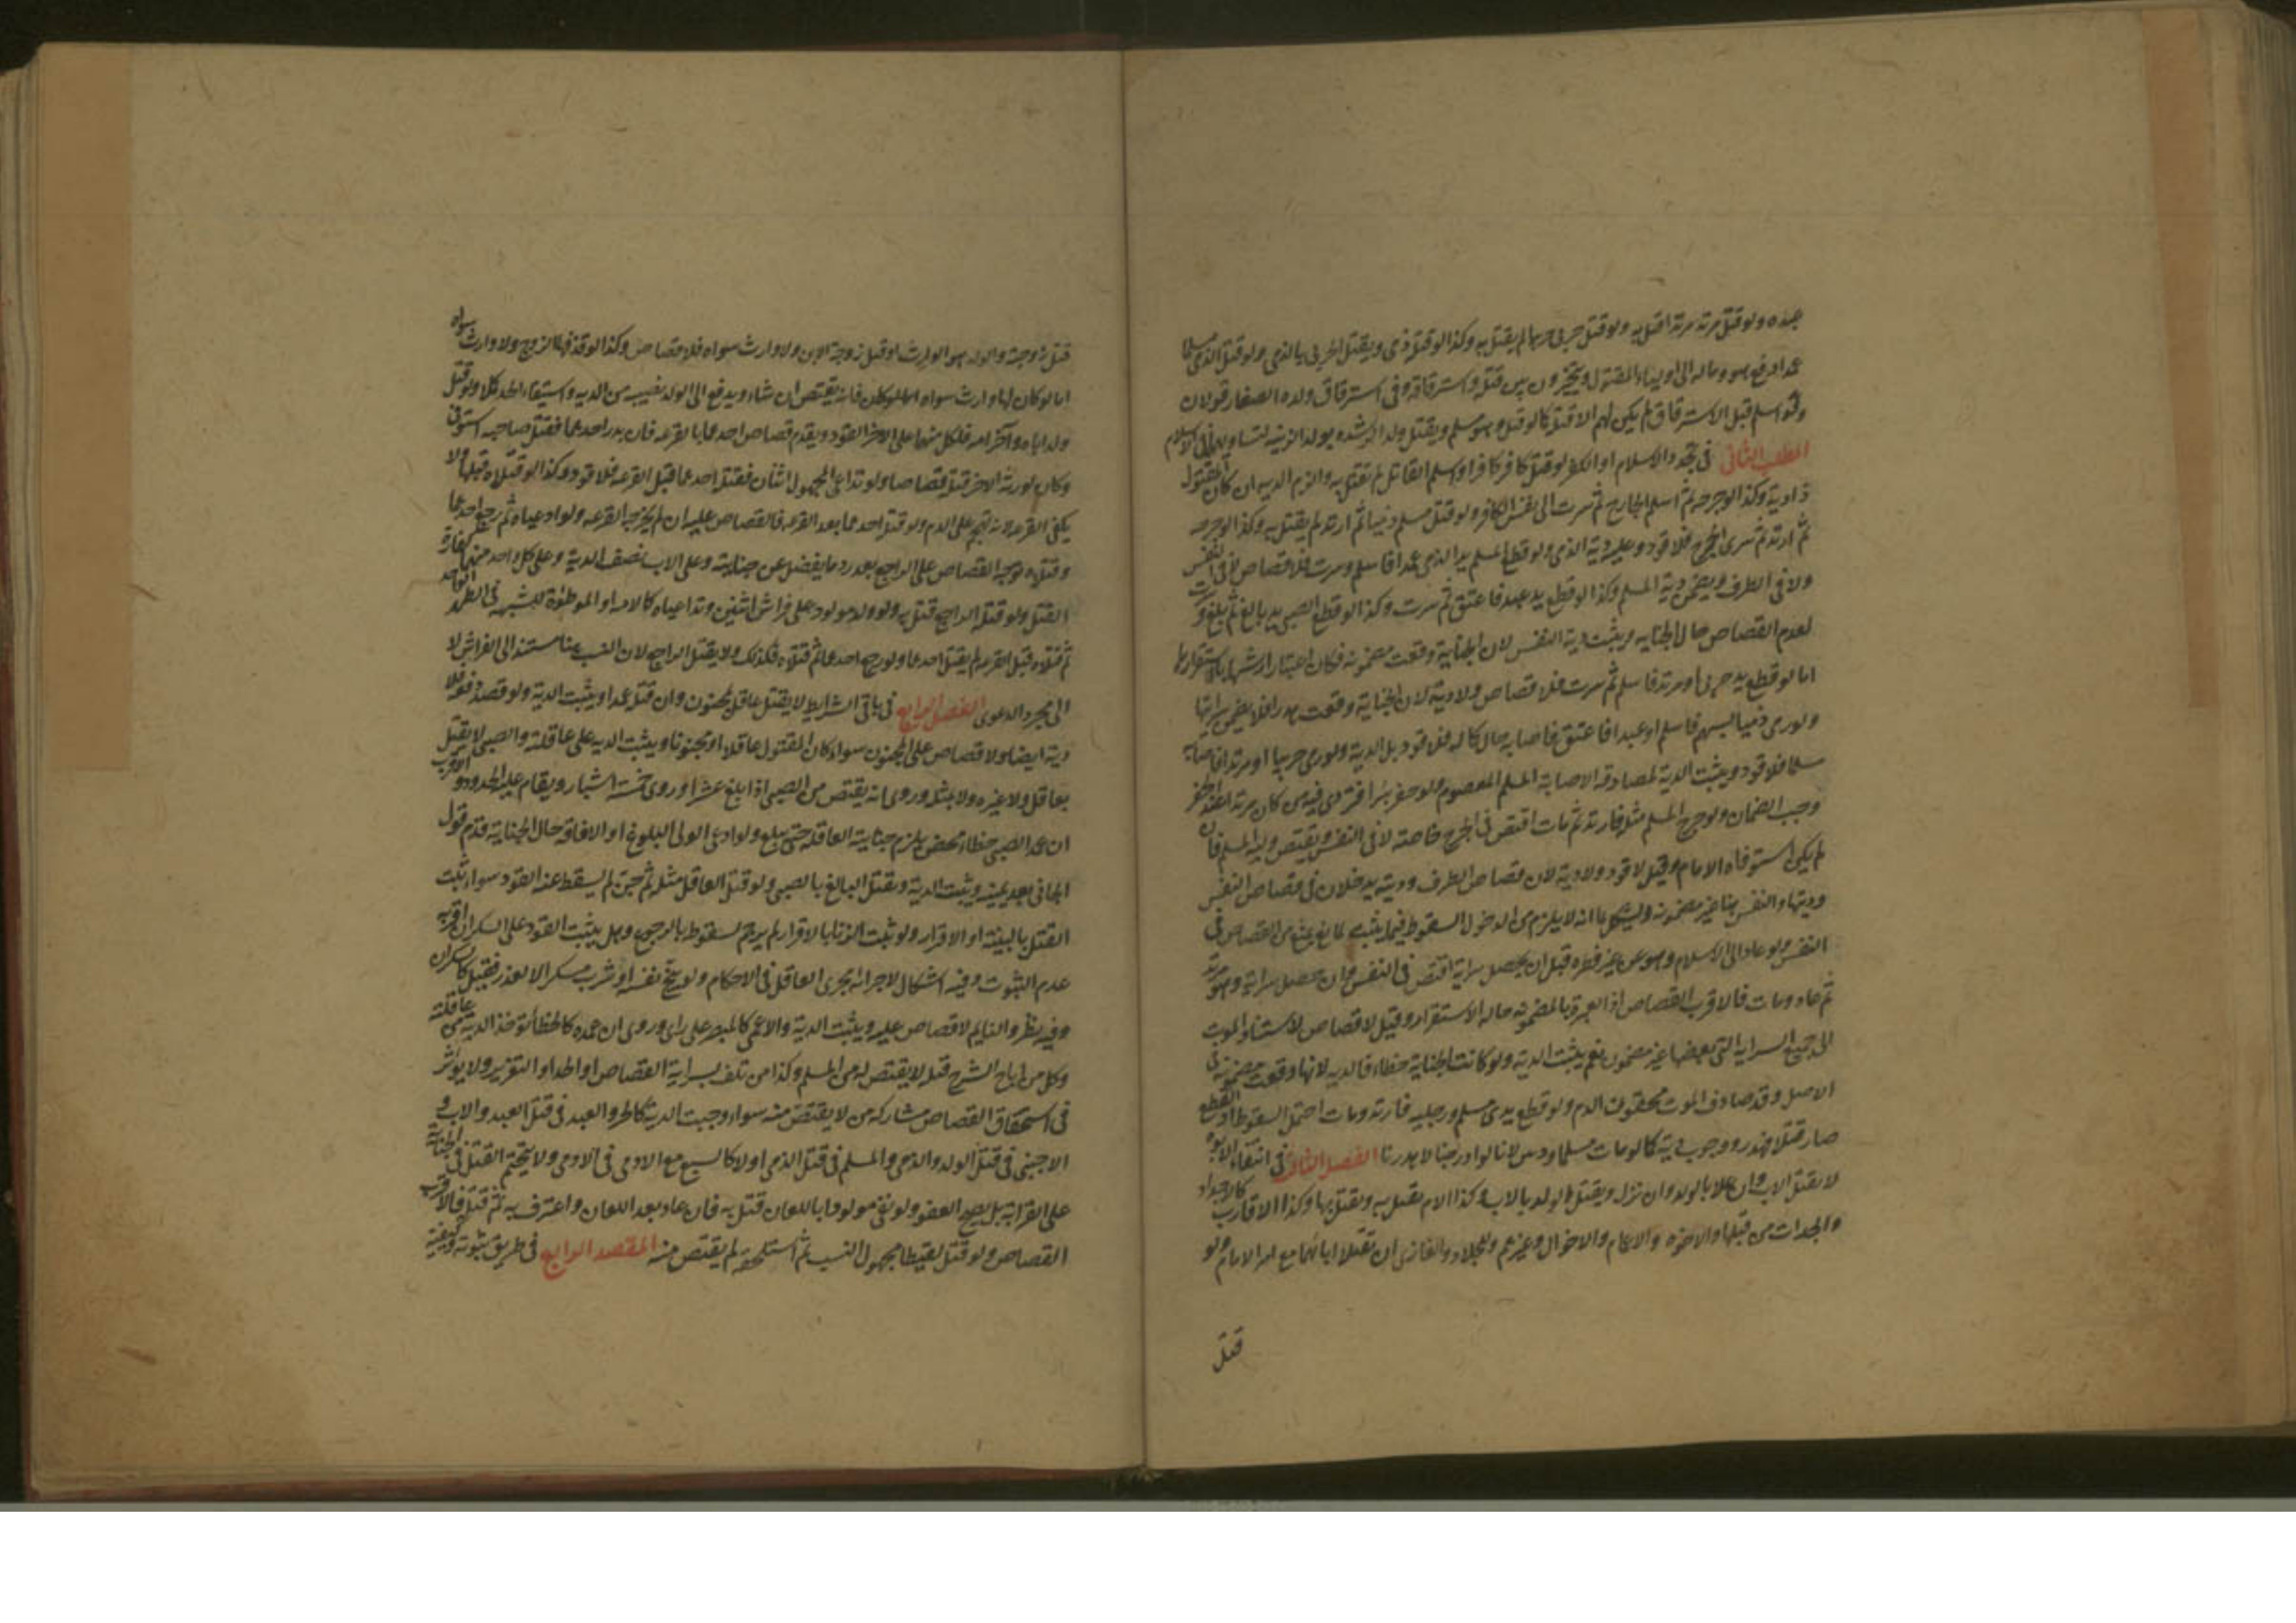 عبده ولو قتل مرتد مرتدا قتل به ولو قتل حربي حربيا لم يقتل به وكذا لو قتل ذمي ويقتل الحربي بالذمي ولو قتل الذمي مسلما
عمدا دفع هو وماله الى اولياء المقتول ويتخيرون بين قتله واسترقاقه وفي استرقاق ولده الصغار قولان
ولو اسلم قبل الاسترقاق لم يكن لهم الا قتله كما لو قتل وهو مسلم ويقتل ولد الرشده بولد الزنيه لتساويهما في الاسلام
المطلب الثاني في تجدد الاسلام او الكفر لو قتل كافر كافرا واسلم القاتل لم يقتل به والزم الديه ان كان المقتول
ذا دية وكذا لو جرحه ثم اسلم الجارح ثم سرت الى نفس الكافر ولو قتل مسلم ذميا ثم ارتد لم يقتل به وكذا لو جرحه
ثم ارتد ثم سرى الجرح فلا قود وعليه دية الذمي ولو قطع المسلم يد الذمي عمدا فاسلم وسرت فلا قصاص في النفس
ولا في الطرف ويضمن دية المسلم وكذا لو قطع يد عبد فاعتق ثم سرت وكذا لو قطع الصبي يد بالغ ثم بلغ وسرت
لعدم القصاص حال الجنايه ويثبت دية النفس لان الجناية وقعت مضمونه فكان اعتبار ارشها باستقرارها
اما لو قطع يد حربي او مرتد فاسلم ثم سرت فلا قصاص ولا دية لان الجناية وقعت هدرا فلا يضمن سرايتها
ولو رمى ذميا بسهم فاسلم او عبدا فاعتق فاصابه حال كماله فلا قود بل الدية ولو رمى حربيا او مرتدا فاصابه
مسلما فلا قود ويثبت الدية لمصادفه الاصابة المسلم المعصوم ولو حفر بئرا فتردى فيه من كان مرتدا عند الحفر
وجب الضمان ولو جرح المسلم مثله فارتد ثم مات اقتص في الجرح خاصة لا في النفس ويقتص وليه المسلم فان
لم يكن استوفاه الامام وقيل لا قود ولا دية لان قصاص الطرف وديته يدخلان في قصاص النفس
وديتها والنفس هنا غير مضمونه ويشكل بما انه لا يلزم من الدخول السقوط فيما يثبت لمانع يمنع من القصاص في
النفس ولو عاد الى الاسلام وهو عن غير فطره قبل ان يحصل سراية اقتص في النفس وان حصل سراية وهو مرتد
ثم عاد ومات فالاقرب القصاص اذ العبرة بالمضمونه حاله الاستقرار وقيل لا قصاص لاستناد الموت
الى جميع السراية التي بعضها غير مضمون نعم يثبت الدية ولو كانت الجناية خطاء فالديه لانها وقعت مضمونة في
الاصل وقد صادف الموت محقون الدم ولو قطع يدي مسلم ورجليه فارتد ومات احتمل السقوط اذ القطع
صار قتلا فهدر ووجوب ديه كما لو مات مسلما وديتين لانا لو ادرجنا لاهدرنا الفصل الثالث في انتفاء الابوه
لا يقتل الاب وان علا بالولد وان نزل ويقتل الولد بالاب وكذا الام يقتل به ويقتل بها وكذا الاقارب كالاجداد
والجدات من قبلها والاخوه والاعمام والاخوال وغيرهم وللجلاد والغازي ان تقتلا اباهما مع امر الامام ولو
قتل
قتل زوجته والولد هو الوارث او قتل زوجة الابن ولا وارث سواه فلا قصاص وكذا لو قذفها الزوج ولا وارث سواه
اما لو كان لها وارث سواه فانه يقتص ان شاء ويدفع الى الولد نصيبه من الديه واستيفاء الحد كملا ولو قتل
ولد اباه وآخر امه فلكل منهما على الاخر القود ويقدم قصاص احدهما بالقرعه فان بدر احدهما فقتل صاحبه استوفى
وكان لورثه الاخر قتله قصاصا ولو تداعى المجهول اثنان فقتله احدهما قبل القرعه فلا قود وكذا لو قتلاه قبلها ولا
يكفي القرعه لانه تهجم على الدم ولو قتله احدهما بعد القرعه فالقصاص عليه ان لم يخرجه القرعه ولو ادعياه ثم رجع احدهما
وقتلاه توجه القصاص على الراجع بعد رد ما يفضل عن جنايته وعلى الاب نصف الدية وعلى كل واحد منهما كفارة
القتل ولو قتله الراجع قتل به ولو ولد مولود على فراش اثنين وتداعياه كالامه او الموطؤة للشبهه في الطهر الواحد
ثم قتلاه قبل القرعه لم يقتل احدهما ولو رجع احدهما ثم قتلاه فكذلك ولا يقتل الراجع لان النسب هنا مستند الى الفراش لا
الى مجرد الدعوى الفصل الرابع في باقي الشرايط لا يقتل عاقل بمجنون وان قتله عمدا ويثبت الدية ولو قصد دفعه فلا
دية ايضا ولا قصاص على المجنون سواء كان المقتول عاقلا او مجنونا ويثبت الديه على عاقلته والصبي لا يقتل
بعاقل ولا غيره ولا بمثله وروي انه يقتص من الصبي اذا بلغ عشرا وروي خمسة اشبار ويقام عليه الحدود والاقرب
ان عمد الصبي خطاء محض يلزم جنايته العاقله حتى يبلغ ولو ادعى الولى البلوغ او الافاقه حال الجناية قدم قول
الجاني بعد يمينه ويثبت الدية ويقتل البالغ بالصبي ولو قتل العاقل مثله ثم جن لم يسقط عنه القود سواء ثبت
القتل بالبينة او الاقرار ولو ثبت الزنا بالاقرار لم يرجم لسقوطه بالرجوع وهل يثبت القود على السكران اقربه
عدم الثبوت وفيه اشكال لاجرائه مجرى العاقل في الاحكام ولو بنج نفسه او شرب مسكرا لا لعذر فقيل كالسكران
وفيه نظر والنايم لا قصاص عليه ويثبت الدية والاعمى كالمبصر على راى وروي ان عمده كالخطأ تؤخذ الدية من عاقلته
وكل من اباح الشرع قتله لا يقتص له من المسلم وكذا من تلف بسراية القصاص او الحد او التعزير ولا يؤثر
في استحقاق القصاص مشاركه من لا يقتص منه سواء وجبت الدية كالحر والعبد في قتل العبد والاب و
الاجنبي في قتل الولد والذمي والمسلم في قتل الذمي او لا كالسبع مع الادمي في الادمي ولا يتحتم القتل في الجناية
على القرابة بل يصح العفو ولو نفى مولودا باللعان قتل به فان عاد بعد اللعان واعترف به ثم قتله فالاقرب
القصاص ولو قتل لقيطا مجهول النسب ثم استلحقه لم يقتص منه المقصد الرابع في طريق ثبوته وكيفيته